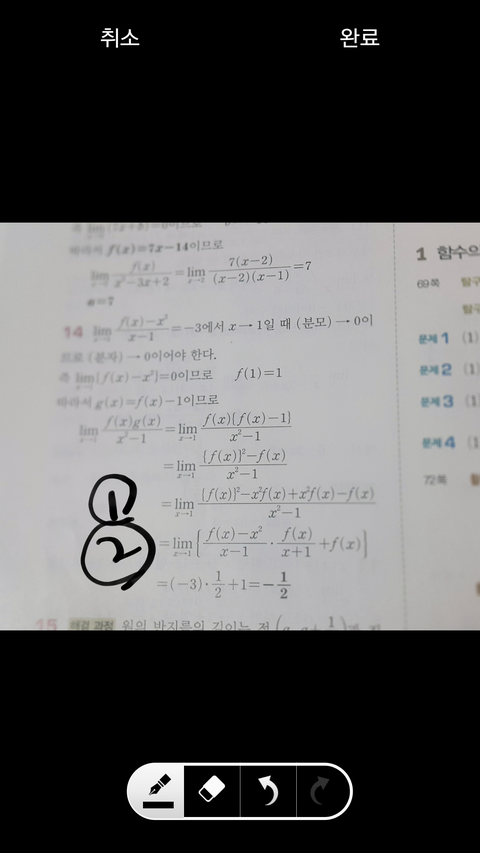 취소 완료
따라서 f(x)=7x-14이므로
lim f(x)/(x²-3x+2) = lim 7(x-2)/((x-2)(x-1)) =7
a=7
14 lim (f(x)-x²)/(x-1) =-3에서 x→1일 때 (분모)→0이
므로 (분자)→0이어야 한다.
즉 lim{f(x)-x²}=0이므로 f(1)=1
따라서 g(x)=f(x)-1이므로
lim_{x→1} f(x)g(x)/(x²-1) = lim_{x→1} f(x){f(x)-1}/(x²-1)
= lim_{x→1} ({f(x)}²-f(x))/(x²-1)
① = lim_{x→1} ({f(x)}²-x²f(x)+x²f(x)-f(x))/(x²-1)
② = lim_{x→1} {(f(x)-x²)/(x-1) · f(x)/(x+1) +f(x)}
=(-3)·1/2+1=-1/2
15 해결 과정 원의 반지름의 길이는 점
1 함수의
69쪽 탐구
탐구
문제 1 (1)
문제 2 (1)
문제 3 (1)
문제 4 (1)
72쪽